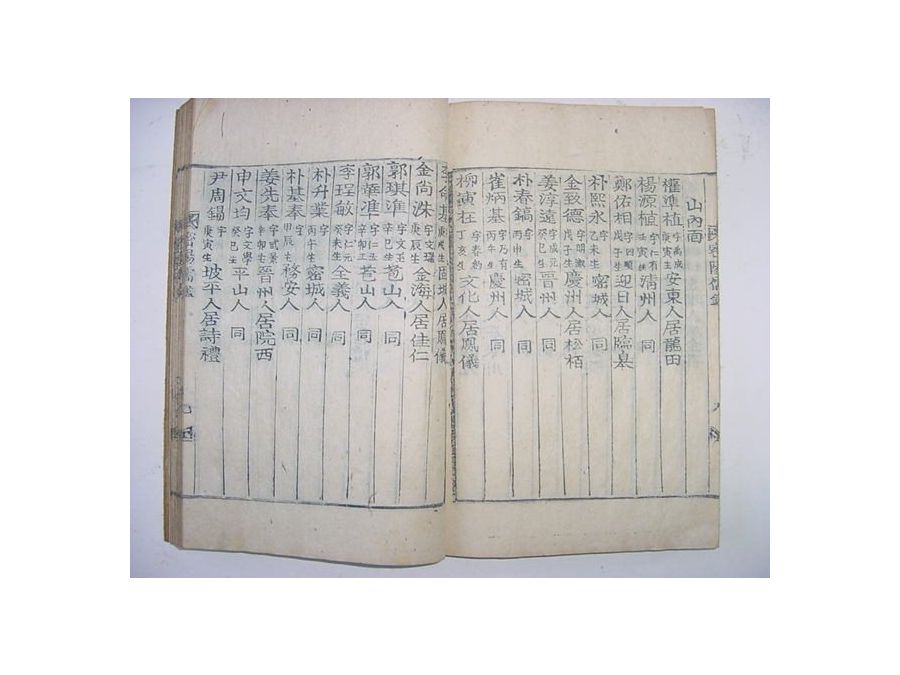 山內面
權準植 字 成 庚寅生 安東人居龍田
楊源植 字仁有 壬寅生 清州人 同
鄭佑相 字四頭 戊子生 迎日人居臨皐
朴熙永 字 乙未生 密城人 同
金致德 字明淑 戊子生 慶州人居松栢
姜渟遠 字成元 癸巳生 晉州人 同
朴春鎬 字 丙午生 密城人 同
崔炳基 字乃有 丙午生 慶州人 同
柳寅在 字春 丁亥生 文化人居鳳儀
李命基 生 固城人居鳳儀
金尚洙 字文瑞 庚辰生 金海人居佳仁
郭琪準 字文玉 辛巳生 苞山人 同
郭華準 字仁五 辛卯生 苞山人 同
李程敏 字仁元 癸未生 全義人 同
朴升業 字 丙午生 密城人 同
朴基奉 字 甲辰生 務安人 同
姜先奉 字式景 辛卯生 晉州人居院西
申文均 字文學 癸巳生 平山人 同
尹周錫 字 庚寅生 坡平人居詩禮